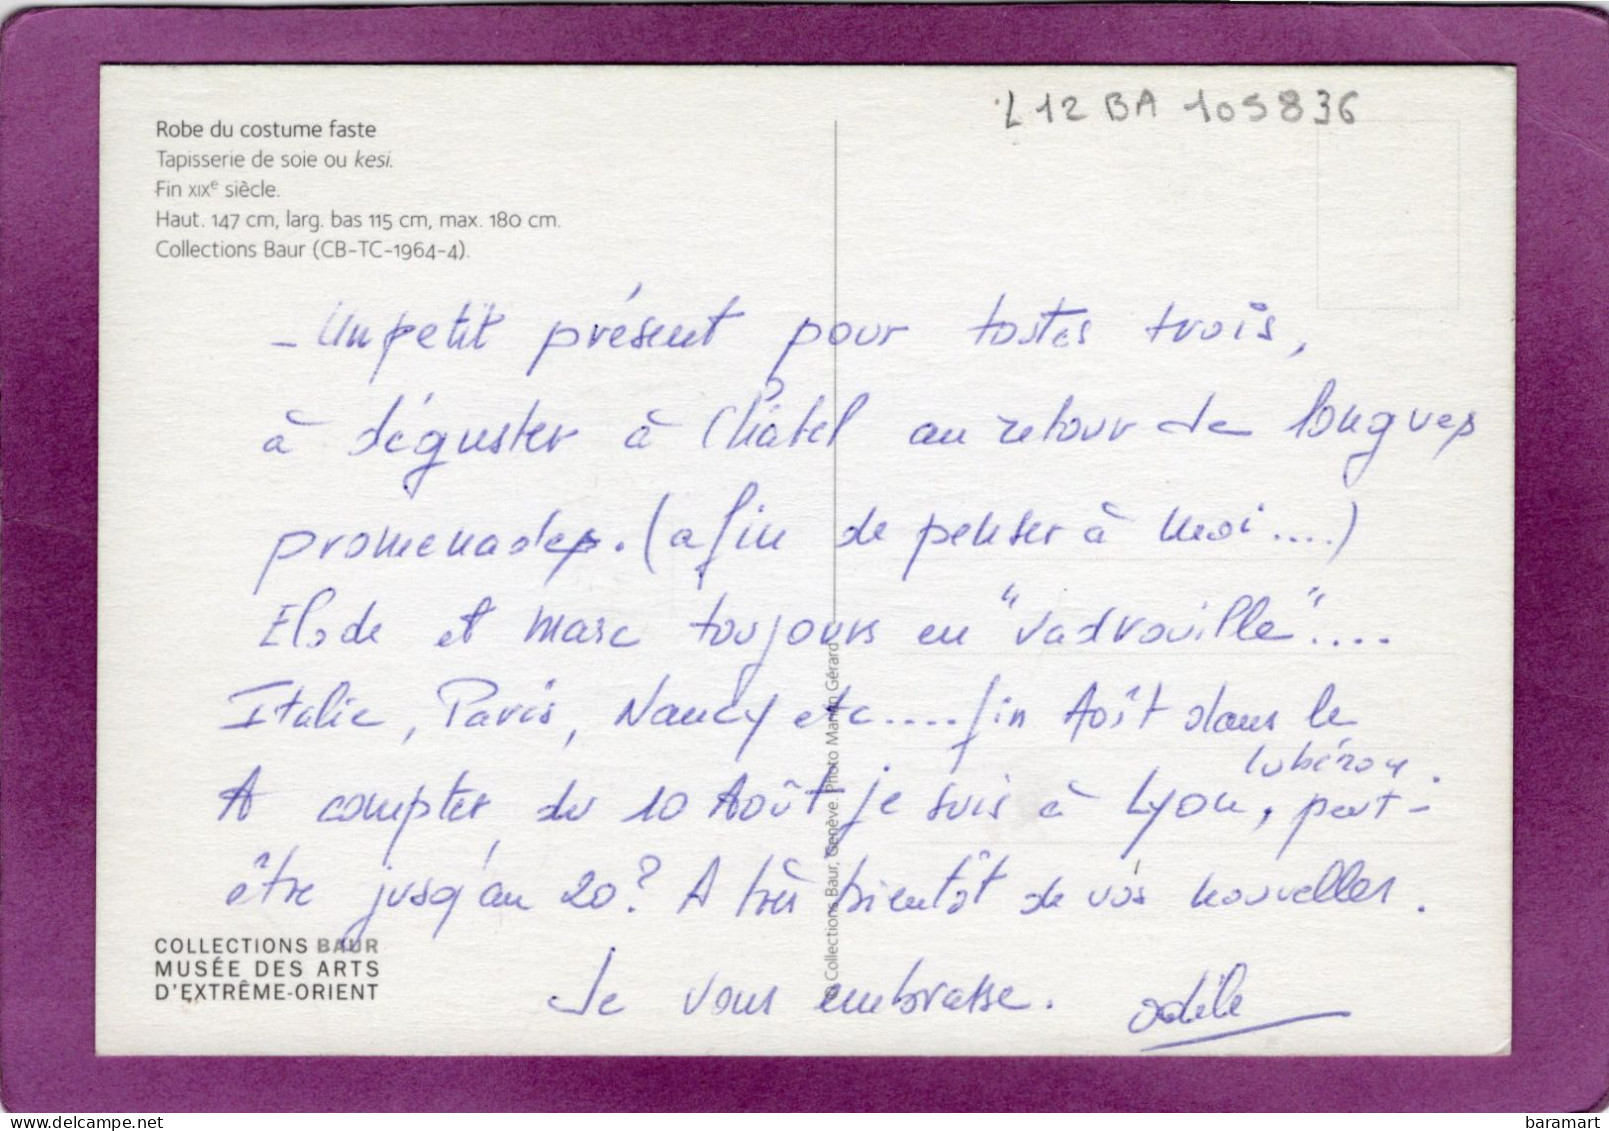 L12 BA 105836
Robe du costume faste
Tapisserie de soie ou kesi.
Fin XIXe siècle.
Haut. 147 cm, larg. bas 115 cm, max. 180 cm.
Collections Baur (CB-TC-1964-4).
- Un petit présent pour toutes trois,
à déguster à Châtel au retour de longues
promenades. (afin de penser à moi....)
Elode et Marc toujours en "vadrouille"....
Italie, Paris, Nancy etc.... fin Août dans le
lubéron.
A compter du 10 Août je suis à Lyon, peut-
être jusqu'au 20? A très bientôt de vos nouvelles.
Je vous embrasse. Odile
COLLECTIONS BAUR
MUSÉE DES ARTS
D'EXTRÊME-ORIENT
© Collections Baur, Genève. Photo Marian Gérard
baramart